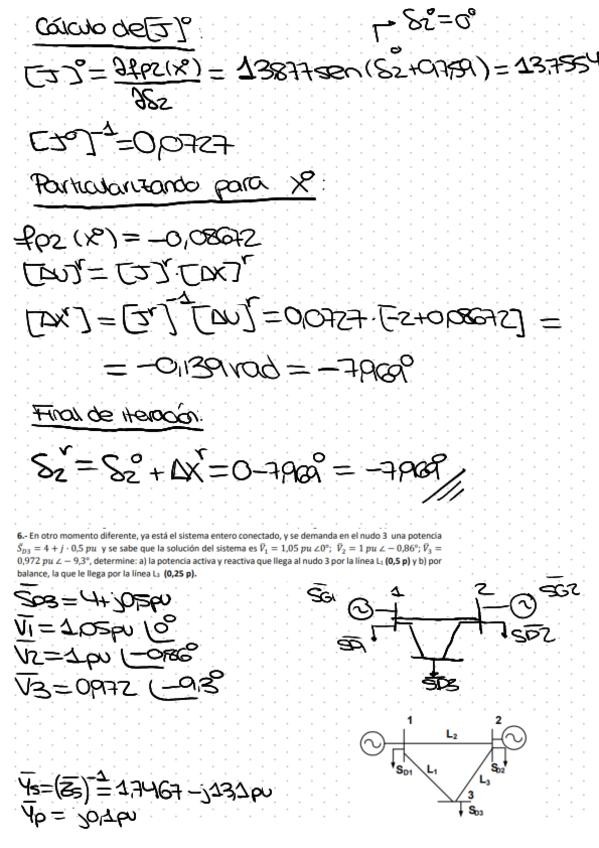 Cálculo de [J]⁰:
δ₂⁰=0°
[J]⁰ = ∂fp2(x⁰)/∂δ2 = 13'877 sen(δ₂⁰+0,759) = 13,7554
[J⁰]⁻¹=0,0727
Particularizando para X⁰:
fp2 (x⁰) = -0,08672
[ΔU]ʳ = [J]ʳ·[ΔX]ʳ
[ΔXʳ] = [Jʳ]⁻¹[ΔU]ʳ = 0,0727·[-2+0,08672] =
= -0,139 rad = -7,969°
Final de iteración:
δ₂ʳ = δ₂⁰ + ΔXʳ = 0-7,969° = -7,969°
6.- En otro momento diferente, ya está el sistema entero conectado, y se demanda en el nudo 3 una potencia
S̄D3 = 4 + j · 0,5 pu y se sabe que la solución del sistema es V̄1 = 1,05 pu ∠0°; V̄2 = 1 pu ∠ − 0,86°; V̄3 =
0,972 pu ∠ − 9,3°, determine: a) la potencia activa y reactiva que llega al nudo 3 por la línea L1 (0,5 p) y b) por
balance, la que le llega por la línea L3 (0,25 p).
S̄D3 = 4+j0,5pu
V̄1 = 1,05pu ∠0°
V̄2 = 1pu ∠-0,86°
V̄3 = 0,972 ∠-9,3°
S̄G1 1 2 S̄G2
S̄D2
S̄D3
1 2
L2
SD1 L1 L3 SD2
3
SD3
Ȳs = (Z̄s)⁻¹ = 1,7467 - j13,1pu
Ȳp = j0,1pu